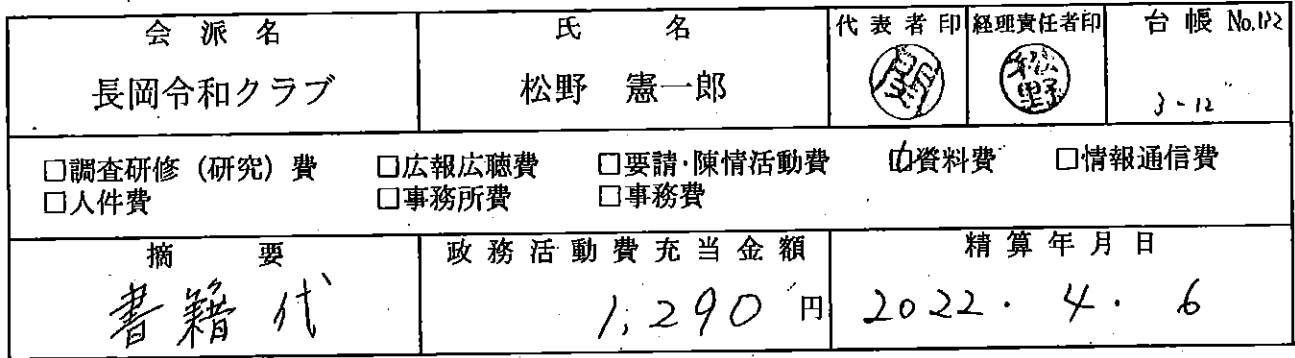 会派名 氏名 代表者印 経理責任者印 台帳 No.
長岡令和クラブ 松野 憲一郎 松野 3-12
□調査研修(研究)費 □広報広聴費 □要請・陳情活動費 ☑資料費 □情報通信費
□人件費 □事務所費 □事務費
摘要 政務活動費充当金額 精算年月日
書籍代 1,290円 2022. 4. 6